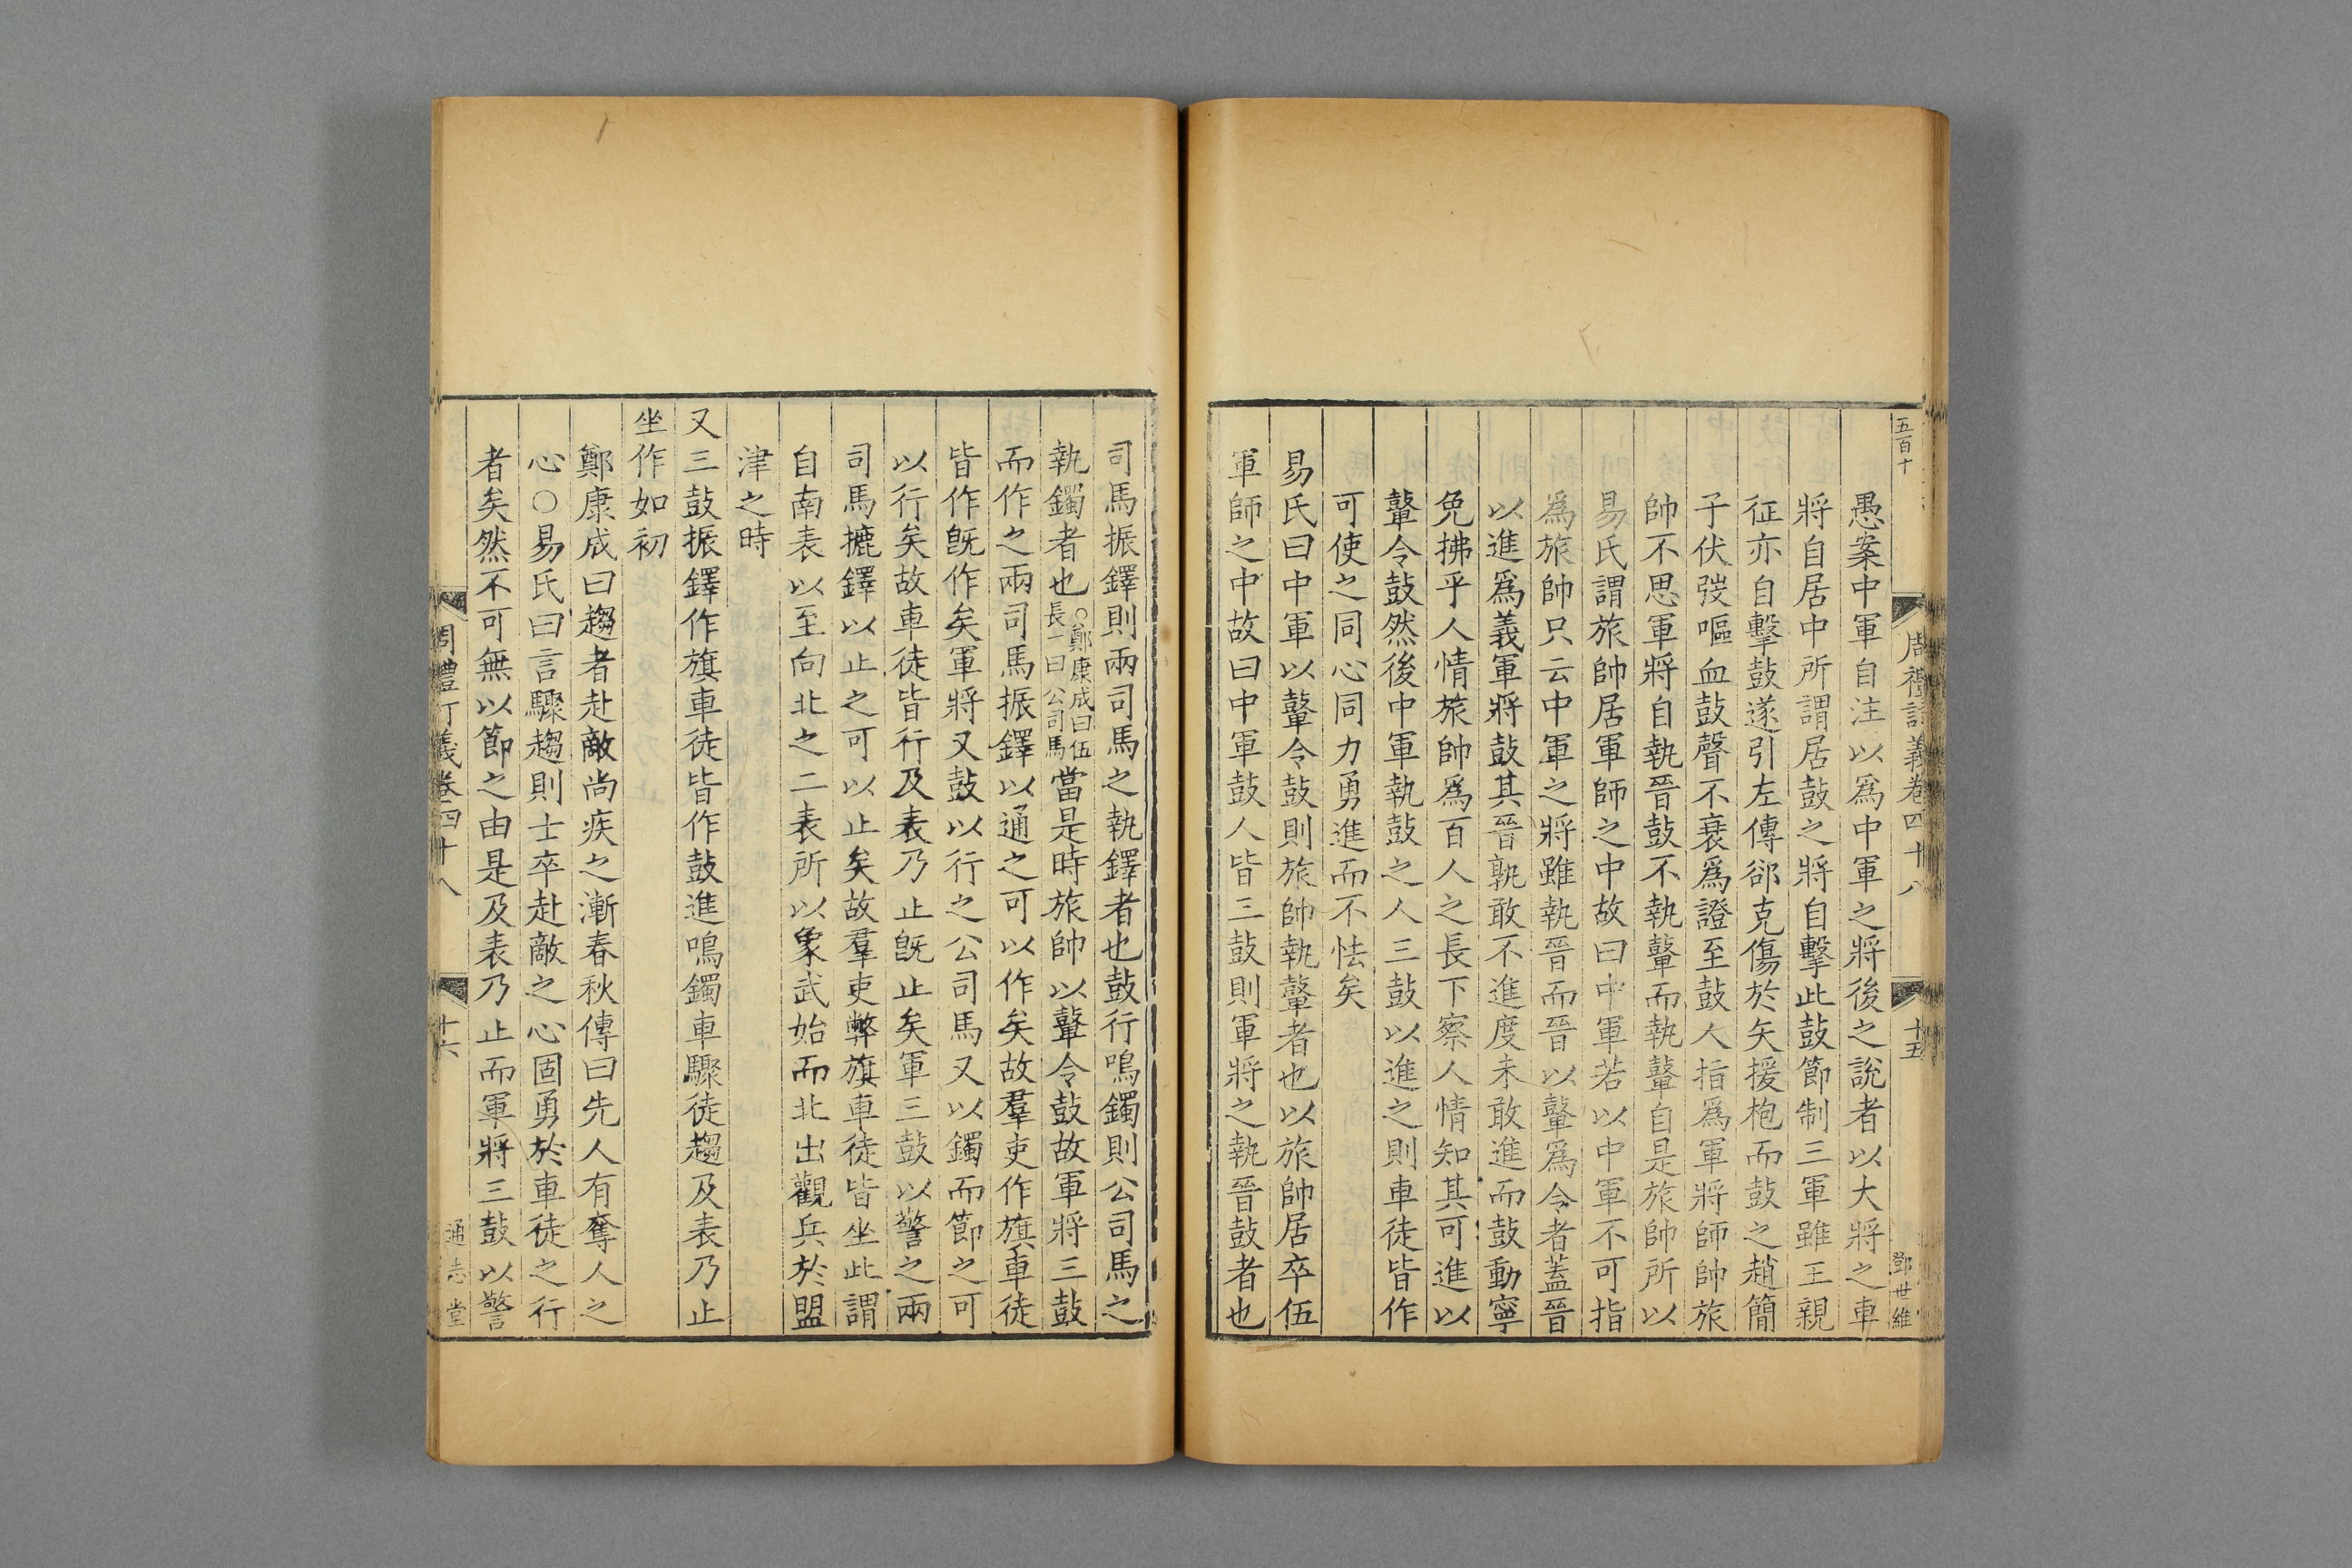 五百十
周禮訂義卷四十八
十五
鄧世維
愚案中軍自注以爲中軍之將後之說者以大將之車
將自居中所謂居鼓之將自擊此鼓節制三軍雖王親
征亦自擊鼓遂引左傳郤克傷於矢援枹而鼓之趙簡
子伏弢嘔血鼓聲不衰爲證至鼓人指爲軍將師帥旅
帥不思軍將自執晉鼓不執鼙而執鼙自是旅帥所以
易氏謂旅帥居軍師之中故曰中軍若以中軍不可指
爲旅帥只云中軍之將雖執晉而晉以鼙爲令者蓋晉
以進爲義軍將鼓其晉孰敢不進度未敢進而鼓動寧
免拂乎人情旅帥爲百人之長下察人情知其可進以
鼙令鼓然後中軍執鼓之人三鼓以進之則車徒皆作
可使之同心同力勇進而不怯矣
易氏曰中軍以鼙令鼓則旅帥執鼙者也以旅帥居卒伍
軍師之中故曰中軍鼓人皆三鼓則軍將之執晉鼓者也
司馬振鐸則兩司馬之執鐸者也鼓行鳴鐲則公司馬之
執鐲者也○鄭康成曰伍長一曰公司馬當是時旅帥以鼙令鼓故軍將三鼓
而作之兩司馬振鐸以通之可以作矣故羣吏作旗車徒
皆作旣作矣軍將又鼓以行之公司馬又以鐲而節之可
以行矣故車徒皆行及表乃止旣止矣軍三鼓以警之兩
司馬摝鐸以止之可以止矣故羣吏弊旗車徒皆坐此謂
自南表以至向北之二表所以象武始而北出觀兵於盟
津之時
又三鼓振鐸作旗車徒皆作鼓進鳴鐲車驟徒趨及表乃止
坐作如初
鄭康成曰趨者赴敵尚疾之漸春秋傳曰先人有奪人之
心○易氏曰言驟趨則士卒赴敵之心固勇於車徒之行
者矣然不可無以節之由是及表乃止而軍將三鼓以警
周禮訂義卷四十八
十六
通志堂